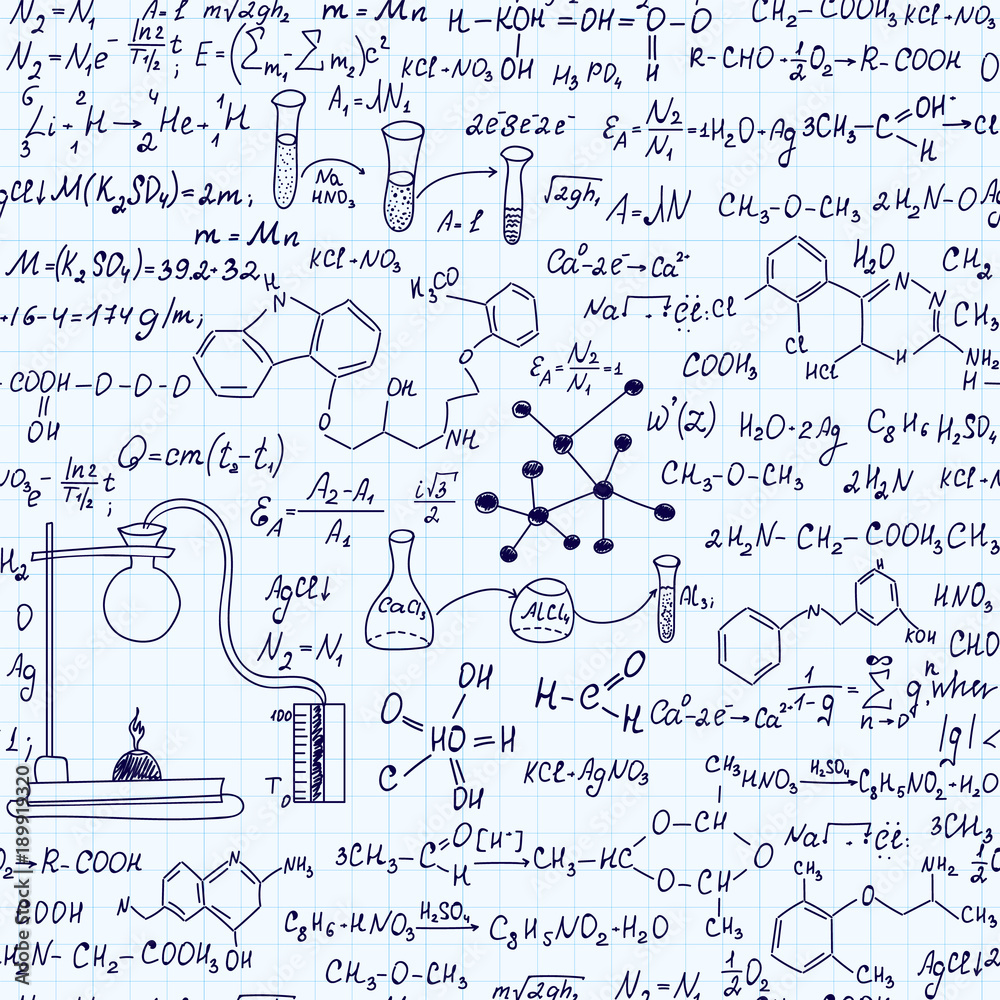 N₂ = N₁ A=l m√2gh₂ m = Mn H-KOH=OH=O-O CH₂-COOH₃ KCl+NO₃
N₂=N₁e⁻ ln2/T1/2 t ; E=(∑m₁-∑m₂)c² KCl+NO₃ OH H₃PO₄ H R-CHO+1/2O₂→R-COOH O
⁶₃Li+²₁H→⁴₂He+¹₁H A₁=λN₁ 2e⁻8e⁻2e⁻ ℰA=N₂/N₁=1H₂O+Ag 3CH₃-C OH⁺ H →Cl
gCl↓ M(K₂SO₄)=2m; Na HNO₃ A=l √2gh₁ A=λN CH₃-O-CH₃ 2H₂N-O Ag
m = Mn
M=(K₂SO₄)=39.2+32 KCl+NO₃ Ca⁰-2e⁻→Ca²⁺ H₂O CH₂
+16-4=174g/m; H N H₃CO Na .+.Cl: Cl N N CH₃
COOH-O-O-O OH O ℰA=N₂/N₁=1 COOH₃ Cl HCl H NH₂
OH O NH W'(Z) H₂O+2Ag C₈H₆ H₂SO₄ H-
Q=cm(t₂-t₁)
NO₃ e⁻ ln2/T1/2 t ; ℰA=A₂-A₁/A₁ i√3/2 CH₃-O-CH₃ 2H₂N KCl+N
2H₂N-CH₂-COOH₃CH₃
H₂ AgCl↓ CaCl₃ AlCl₄ Al₃; N H HNO₃
O N₂=N₁ KOH CHO
Ag OH H-C O H Ca⁰-2e⁻→Ca²⁺ 1/1-g=∑ gⁿ, wher
∞ n→0
1; 100 O HO=H |g|<
T 0 C OH KCl+AgNO₃ CH₃ HNO₃ H₂SO₄→C₈H₅NO₂+H₂O
O₂→R-COOH N NH₃ 3CH₃-C O H [H⁺]→CH₃-HC O-CH O O-CH CH₃ Na .+.Cl: 3CH₃
COOH N C₈H₆+HNO₃ H₂SO₄→C₈H₅NO₂+H₂O CH₃ O NH₂ 1/2O
HN-CH₂-COOH₃ OH CH₃-O-CH₃ CH₃ CH₃ AgCl↓2
m√2gh₂ N₂=N₁ 1/2O₂
Adobe Stock | #189919320